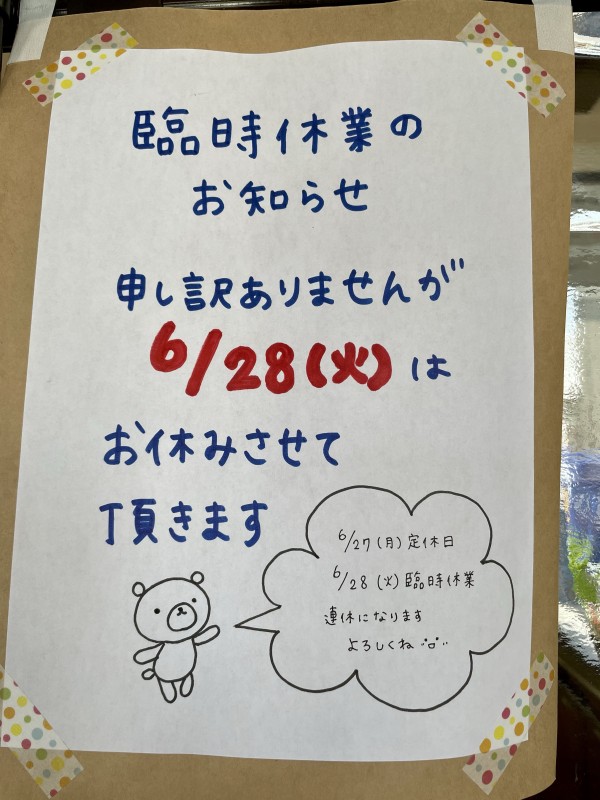 臨時休業の
お知らせ
申し訳ありませんが
6/28(火)は
お休みさせて
頂きます
6/27(月)定休日
6/28(火)臨時休業
連休になります
よろしくね